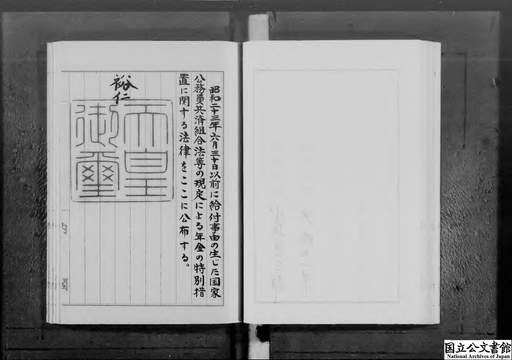 昭和二十三年六月三十日以前に給付事由の生じた国家
公務員共済組合法等の規定による年金の特別措
置に関する法律をここに公布する。
裕仁
天皇
御璽
国立公文書館
National Archives of Japan